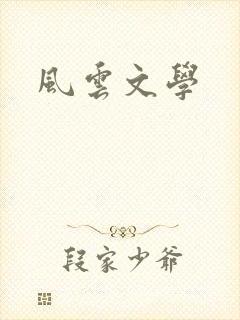 風雲文學
段家少爺